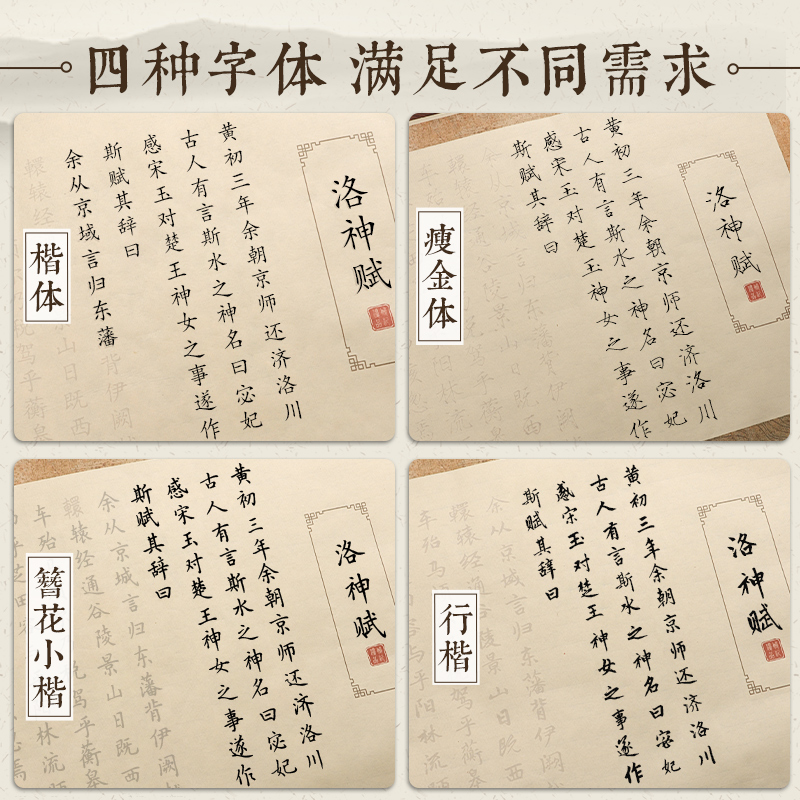 四种字体 满足不同需求
楷体
洛神赋
黄初三年余朝京师还济洛川
古人有言斯水之神名曰宓妃
感宋玉对楚王神女之事遂作
斯赋其辞曰
余从京域言归东藩背伊阙
轘辕经
山日既西
驾乎蘅皋
瘦金体
洛神赋
黄初三年余朝京师还济洛川
古人有言斯水之神名曰宓妃
感宋玉对楚王神女之事遂作
斯赋其辞曰
簪花小楷
洛神赋
黄初三年余朝京师还济洛川
古人有言斯水之神名曰宓妃
感宋玉对楚王神女之事遂作
斯赋其辞曰
余从京域言归东藩背伊阙
轘辕经通谷陵景山日既西
车殆
驾乎蘅皋
林流
行楷
洛神赋
黄初三年余朝京师还济洛川
古人有言斯水之神名曰宓妃
感宋玉对楚王神女之事遂作
斯赋其辞曰
余从京域言归东藩背伊阙
轘辕经
陵景山日既西
车殆马
驾乎蘅皋
乎阳林流